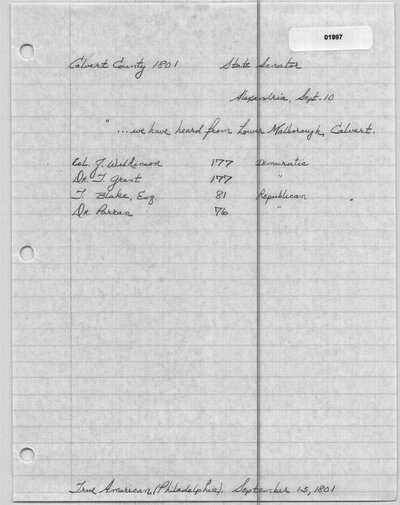 01997
Calvert County 1801 State Senator
Alexandria, Sept. 10
"...we have heard from Lower Malborough, Calvert.
Col. J. Wilkinson 177 Democratic
Dr. T. Grant 177 "
T. Blake, Esq. 81 Republican
Dr. Parran 76 "
True American (Philadelphia). September 15, 1801